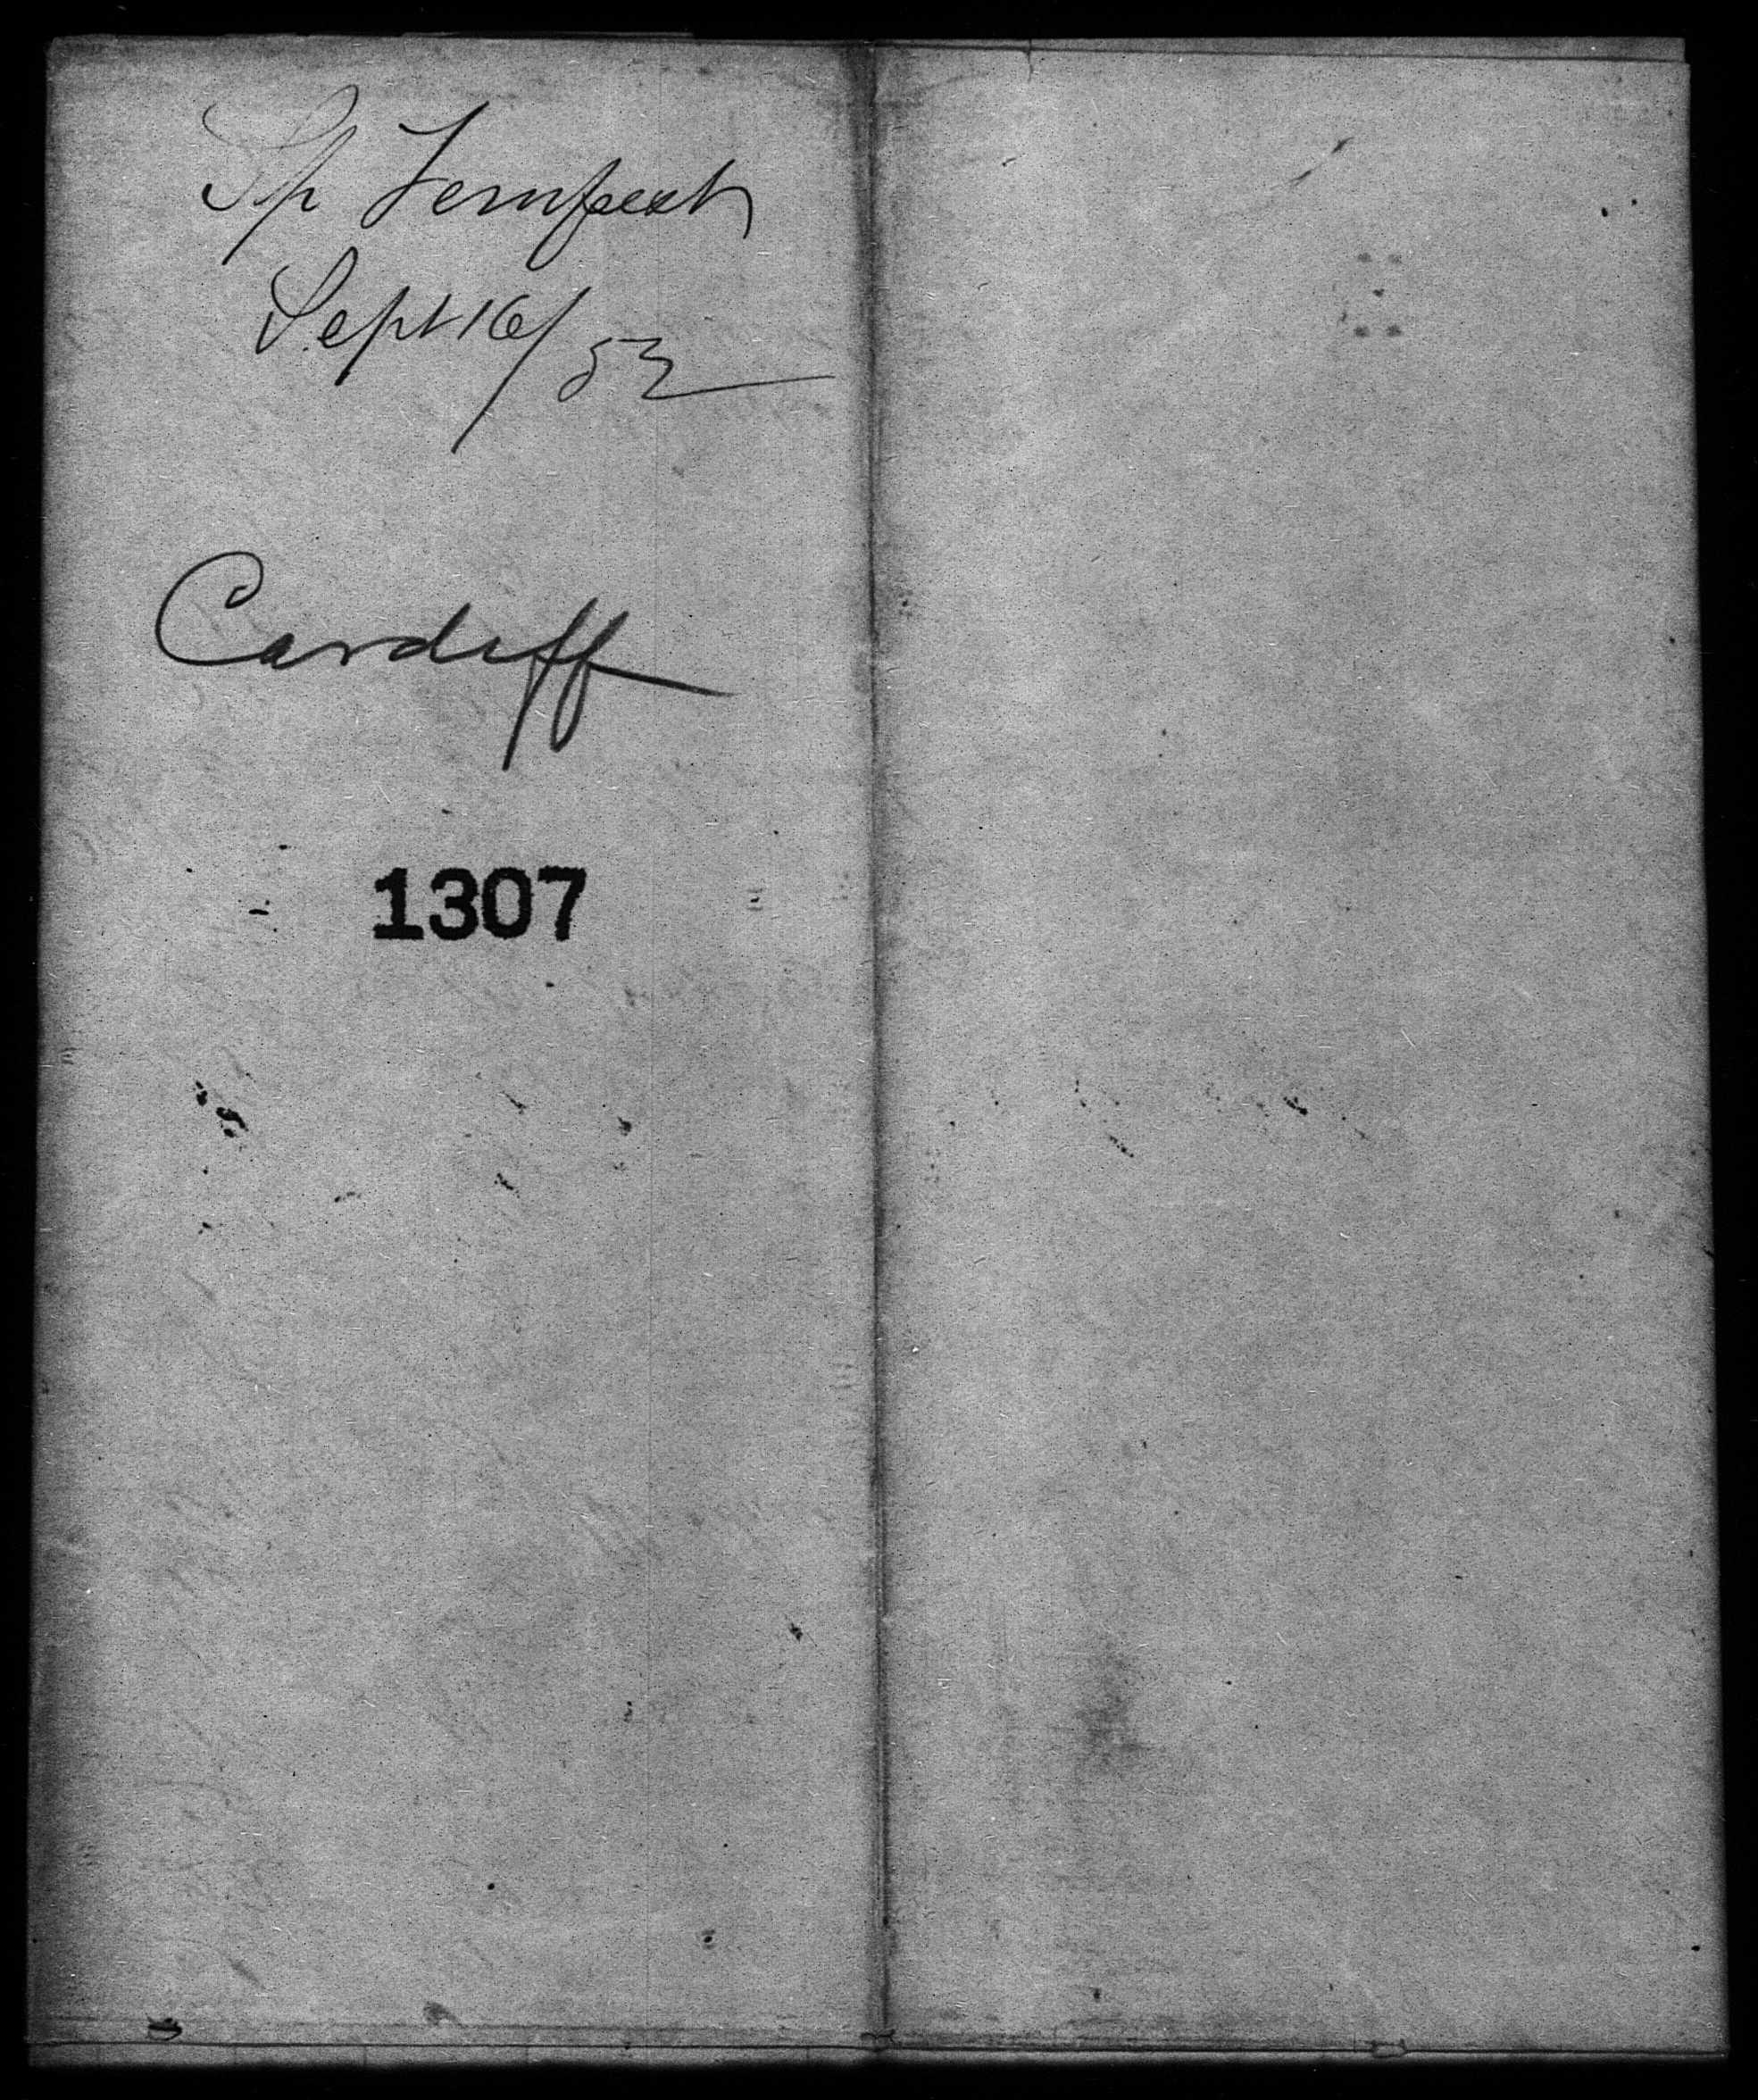 Sp Tempest
Sept 16/53
Cardiff
1307